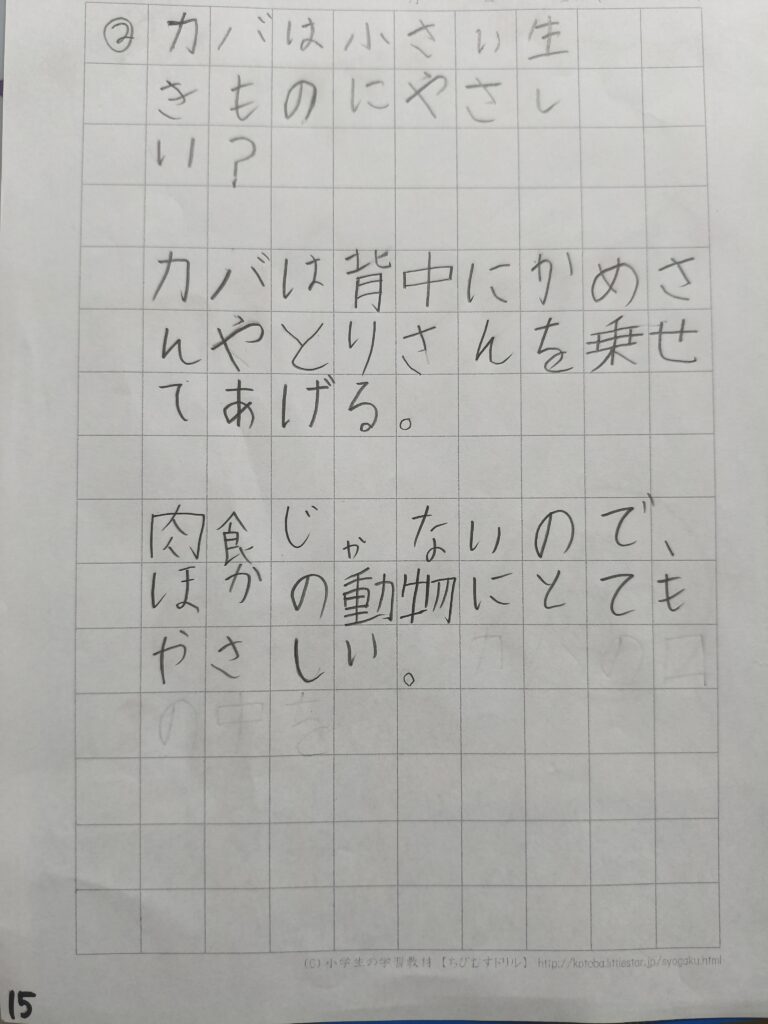 ② カバは小さい生
きものにやさし
い?
カバは背中にかめさ
んやとりさんを乗せ
てあげる。
肉食じゃないので、
ほかの動物にとても
やさしい。カバの口
の中を
(C)小学生の学習教材【ちびむすドリル】 http://kotoba.littlestar.jp/syogaku.html
15